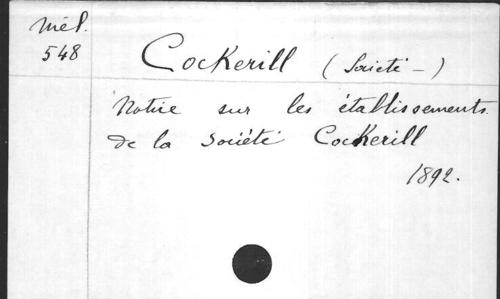 Mél.
548
Cockerill (Société -)
Notice sur les établissements
de la Société Cockerill
1892.